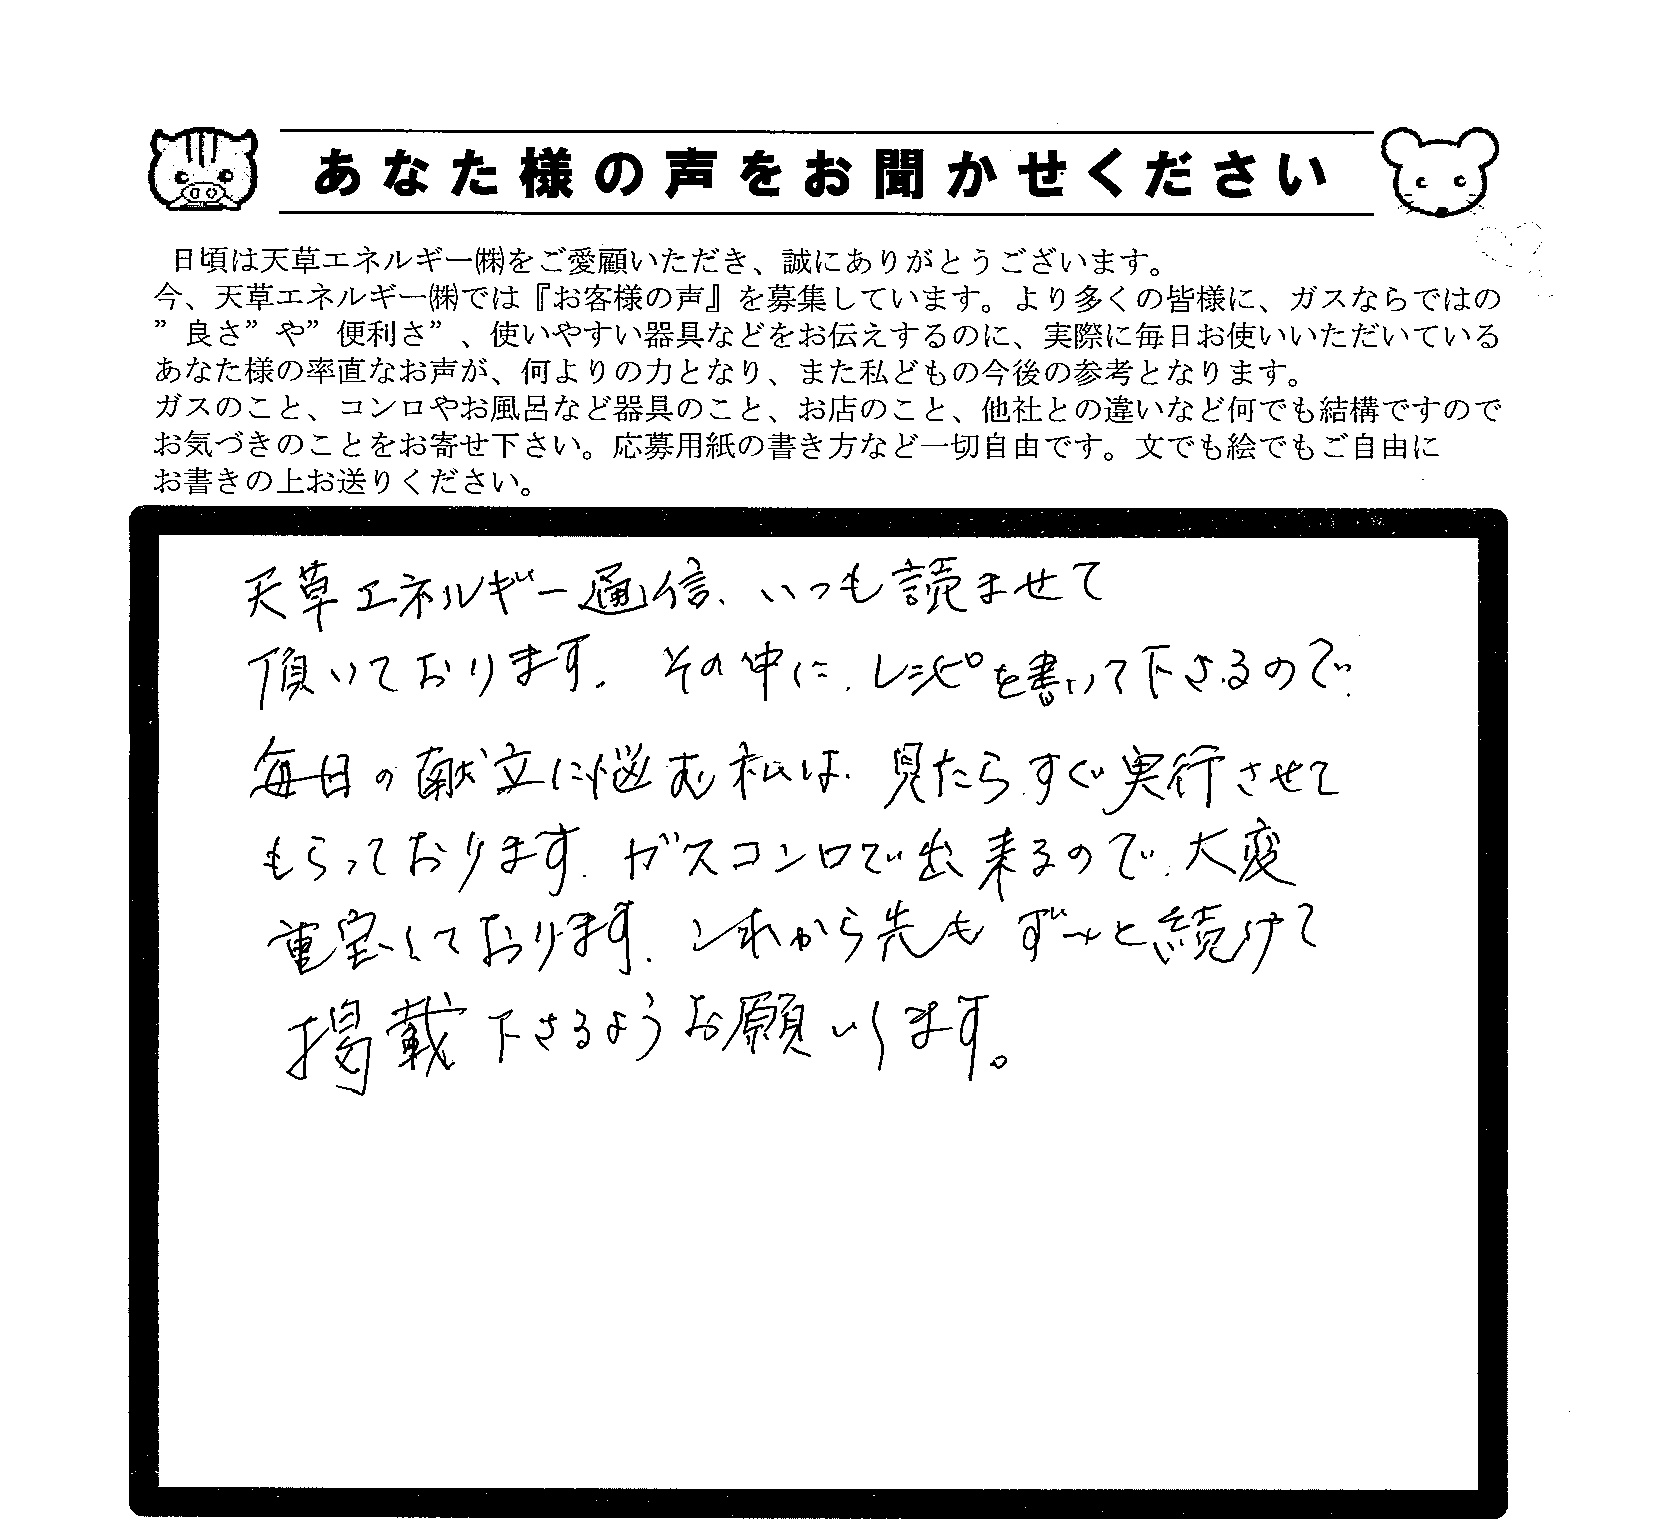 あなた様の声をお聞かせください
日頃は天草エネルギー㈱をご愛顧いただき、誠にありがとうございます。
今、天草エネルギー㈱では『お客様の声』を募集しています。より多くの皆様に、ガスならではの
”良さ”や”便利さ”、使いやすい器具などをお伝えするのに、実際に毎日お使いいただいている
あなた様の率直なお声が、何よりの力となり、また私どもの今後の参考となります。
ガスのこと、コンロやお風呂など器具のこと、お店のこと、他社との違いなど何でも結構ですので
お気づきのことをお寄せ下さい。応募用紙の書き方など一切自由です。文でも絵でもご自由に
お書きの上お送りください。
天草エネルギー通信、いつも読ませて
頂いております。その中に、レシピを書いて下さるので、
毎日の献立に悩む私は、見たらすぐ実行させて
もらっております。ガスコンロで出来るので、大変
重宝しております。これから先もずーっと続けて
掲載下さるようお願いします。